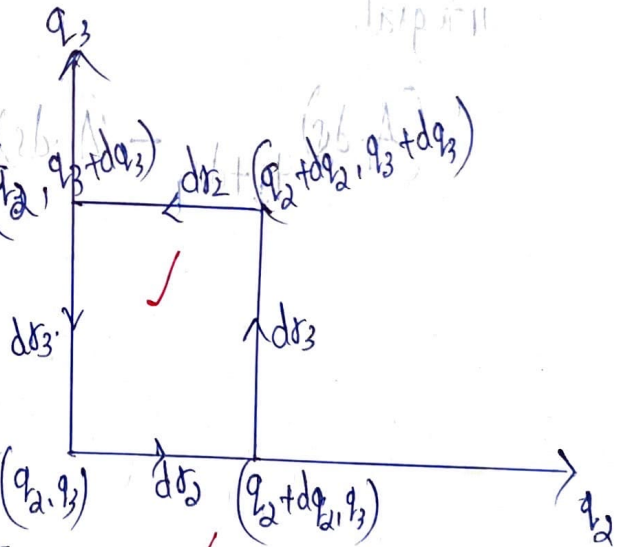 q₃
(q₂, q₃+dq₃)
dr₂
(q₂+dq₂, q₃+dq₃)
dr₃
dr₃
(q₂, q₃)
dr₂
(q₂+dq₂, q₃)
q₂